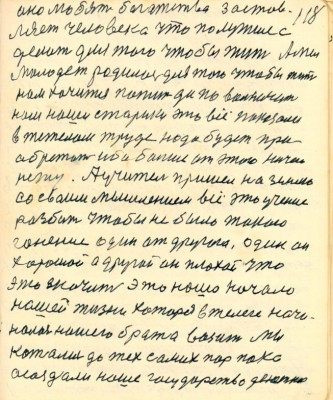 118
оно любят богатства застов-
ляет человека что получше с
делат для того чтобы жит А мы
молодеж родилас для того чтобы жит
нам хочится попит да по
нам наши старики это всё показали
в тяжелом труде нода будет при
обретат иба больше от этого ничего
нету. А учител пришел на землю
со своим мышлением всё это учение
разбит чтобы не было такого
гонение один от другога, один он
хороший а другой он плохой что
это значит это наша начало
нашей жизни которое в телеге нача-
лось нашего брата возит мы
катали до тех самих пор пока
создали наше государство